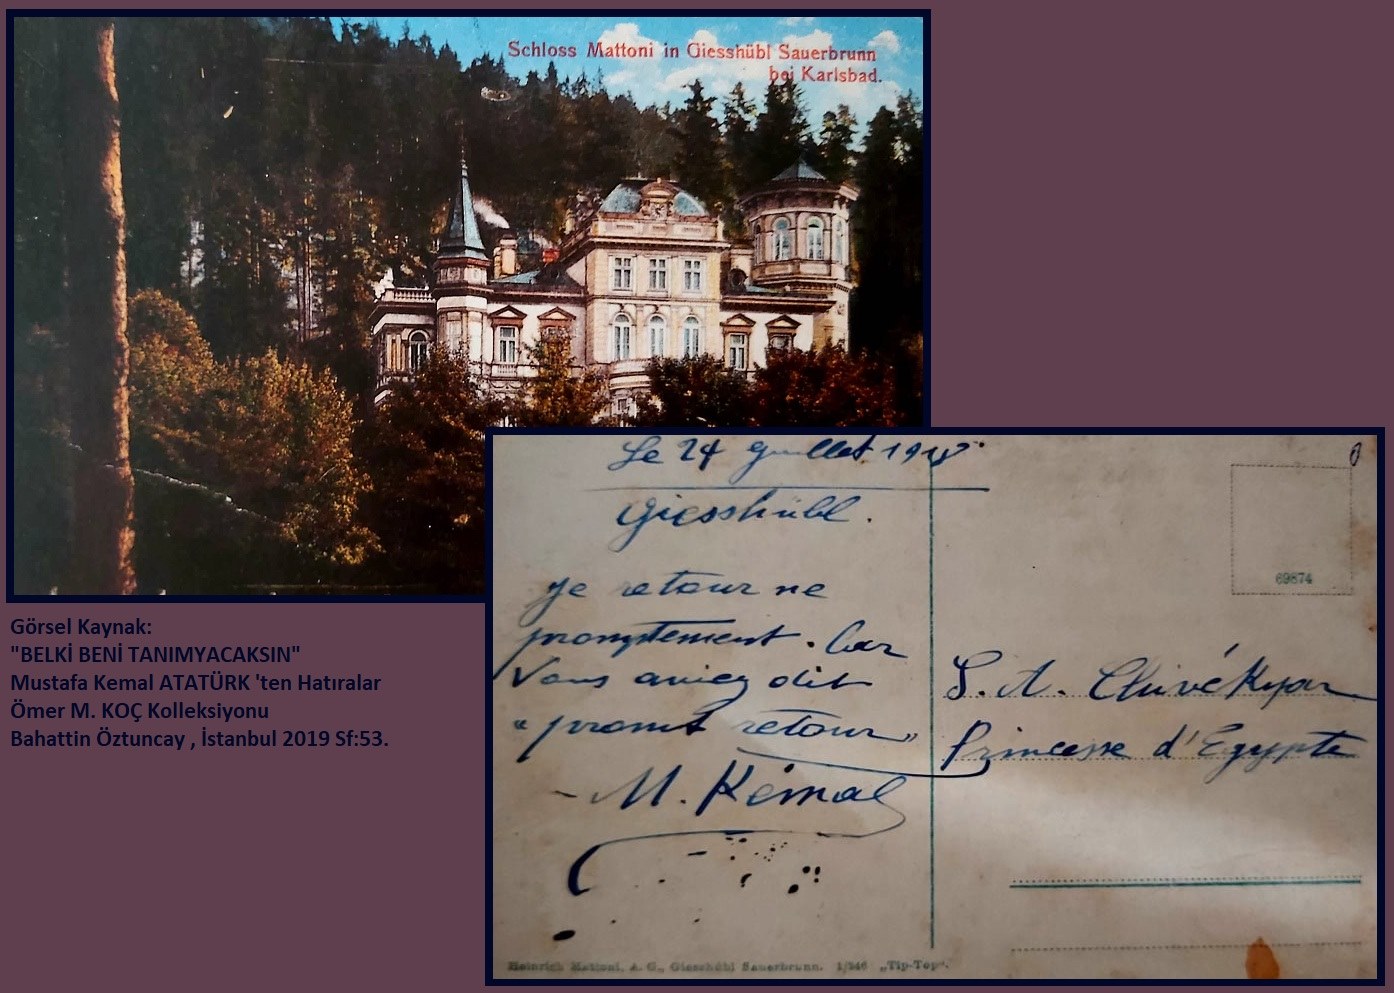 Schloss Mattoni in Giesshübl Sauerbrunn
bei Karlsbad.
Le 24 Juillet 1918
Giesshübl.
Je retourne
promptement. Car
Vous aviez dit
"promt retour"
M. Kémal
69874
S. A. Chivékyar
Princesse d'Egypte
Heinrich Mattoni, A. G., Giesshübl Sauerbrunn. 1/346 „Tip-Top“.
Görsel Kaynak:
"BELKİ BENİ TANIMYACAKSIN"
Mustafa Kemal ATATÜRK 'ten Hatıralar
Ömer M. KOÇ Kolleksiyonu
Bahattin Öztuncay , İstanbul 2019 Sf:53.